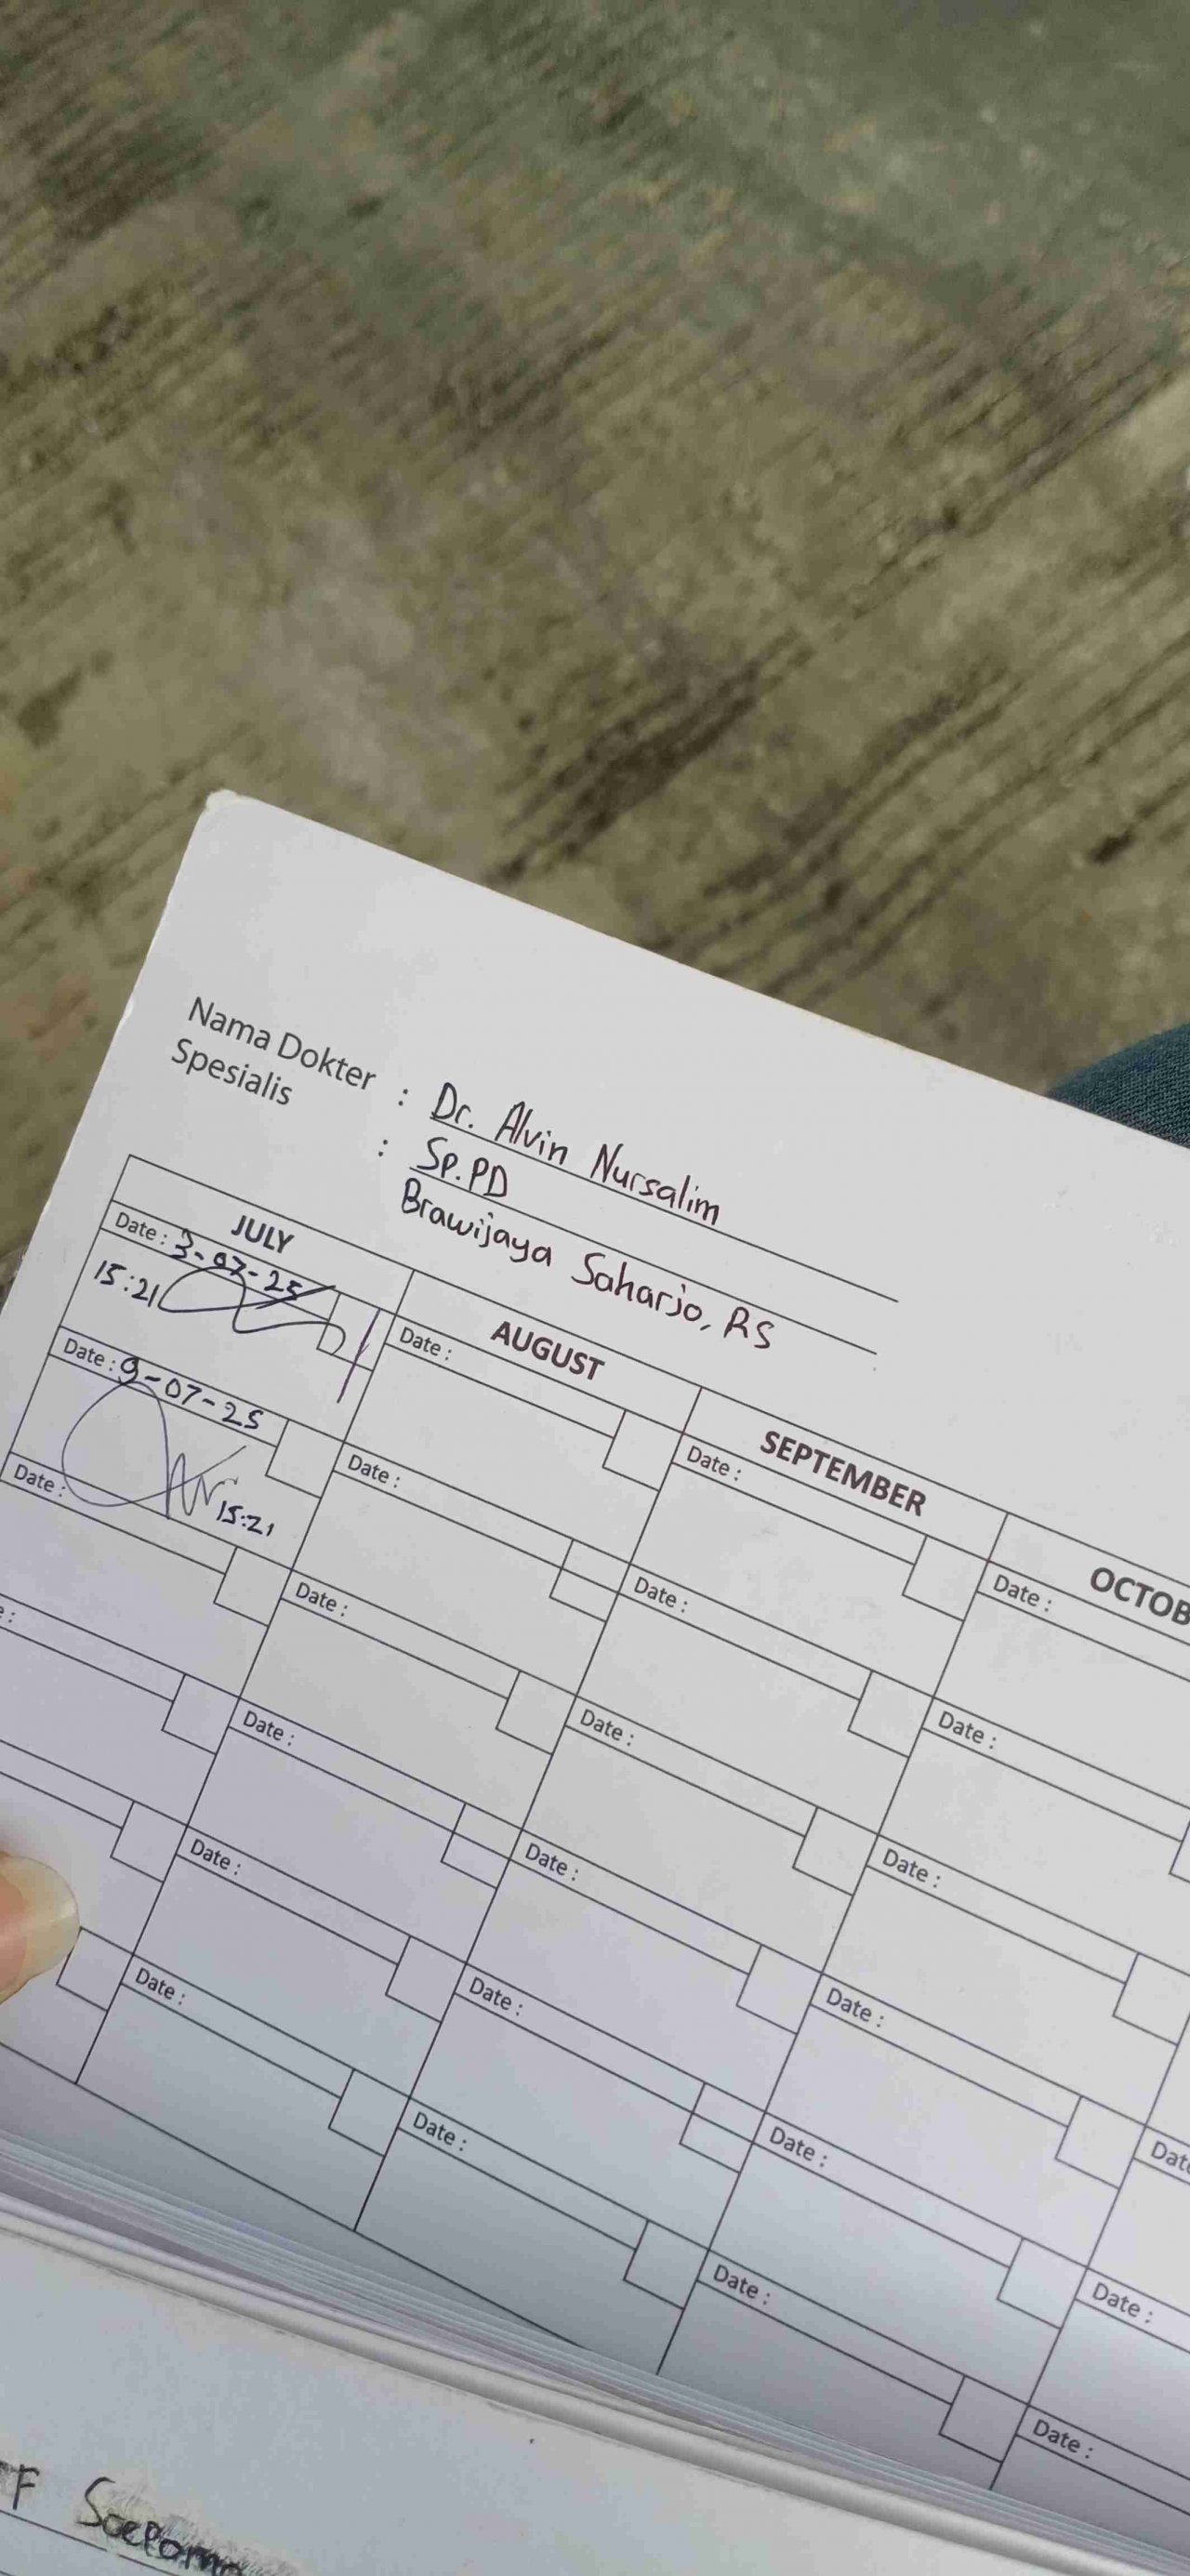 Nama Dokter : Dr. Alvin Nursalim
Spesialis : Sp.PD
Brawijaya Saharjo, RS
JULY AUGUST SEPTEMBER OCTOB
Date : 3-07-25 Date : Date : Date :
15:21
Date : 9-07-25 Date : Date : Date :
15:21
Date : Date : Date : Date :
e : Date : Date : Date :
Date : Date : Date : Date
Date : Date : Date : Date :
Date :
F Soepomo